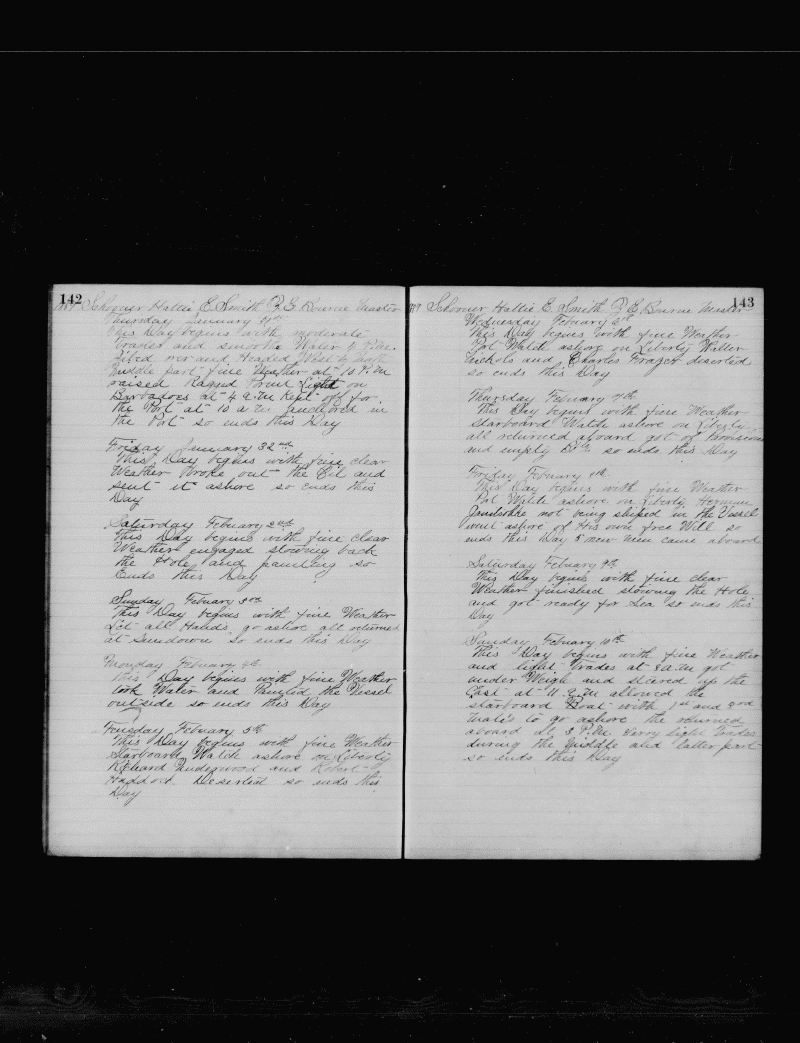 142
Schooner Hattie E Smith F. E Bourne Master
Thursday January 31st
This Day begins with moderate
trades and smooth Water 4 P.M.
Gibed over and Headed West by South
Middle part fine Weather at 10 P.M
raised Ragged Point Light on
Barbadoes at 4 a.m kept off for
the Port at 10 a.m anchored in
the Port so ends this Day
Friday January 32nd
This Day begins with fine clear
Weather broke out the Oil and
sent it ashore so ends this
Day
Saturday Febuary 2nd
This Day begins with fine clear
Weather engaged stowing back
the Hole and painting so
Ends this Day
Sunday Febuary 3rd
This Day begins with fine Weather
Let all Hands go ashore all returned
at Sundown so ends this Day
Monday Febuary 4th
This Day begins with fine Weather
took Water and Painted the Vessel
outside so ends this Day
Tuesday Febuary 5th
This Day begins with fine Weather
Starboard Watch ashore on Liberty
Richard Underwood and Robert
Haddock Deserted so ends this
Day
143
Schooner Hattie E. Smith F E Bourne Master
Wednesday Febuary 6th
This Day begins with fine Weather
Port Watch ashore on Liberty Walter
Nichols and Charles Frazer deserted
so ends this Day
Thursday Febuary 7th
This Day begins with fine Weather
Starboard Watch ashore on Liberty
all returned aboard got of Provisions
and empty so ends this Day
Friday Febuary
This Day begins with fine Weather
Port Watch ashore on Liberty Herman
not being shiped in the Vessel
went ashore of His own free Will so
ends this Day 5 new men came aboard
Saturday Febuary 9th
This Day begins with fine clear
Weather finished stowing the Hole
and got ready for Sea so ends this
Day
Sunday Febuary 10th
This Day begins with fine Weather
and light Trades at 8 a.m got
under Weigh and steered up the
East at 11 a.m allowed the
starboard Boat with 1st and 2nd
Mates to go ashore the returned
aboard at 3 P.M. very light Trades
during the Middle and latter part
so ends this Day